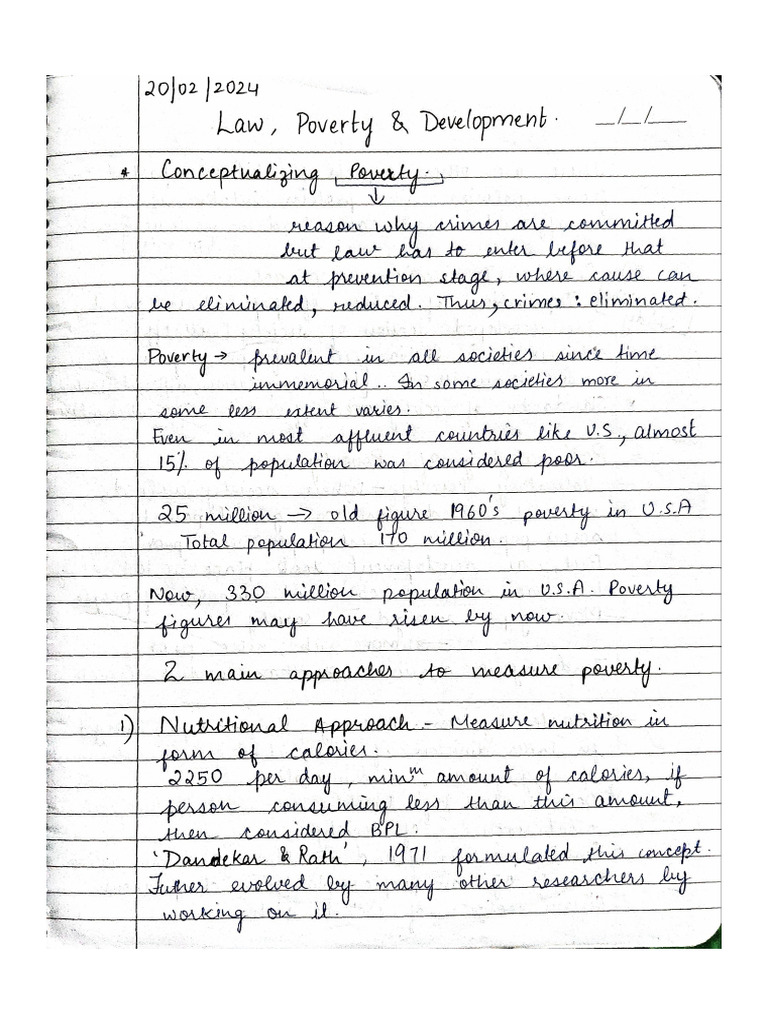 20/02/2024
Law, Poverty & Development. _/_/__
* Conceptualizing Poverty.
↓
reason why crimes are committed
but law has to enter before that
at prevention stage, where cause can
be eliminated, reduced. Thus, crimes : eliminated.
Poverty → prevalent in all societies since time
immemorial.. In some societies more in
some less extent varies.
Even in most affluent countries like U.S., almost
15% of population was considered poor.
25 million → old figure 1960's poverty in U.S.A
Total population 170 million.
Now, 330 million population in U.S.A. Poverty
figures may have risen by now.
2 main approaches to measure poverty.
1) Nutritional Approach - Measure nutrition in
form of calories.
2250 per day, minm amount of calories, if
person consuming less than this amount,
then considered BPL.
'Dandekar & Rath', 1971 formulated this concept.
Futher evolved by many other researchers by
working on it.